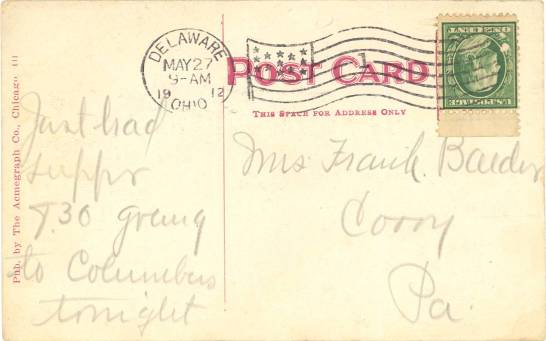 DELAWARE
MAY 27
9-AM
19 12
OHIO
POST CARD
THIS SPACE FOR ADDRESS ONLY
ONE CENT
U.S. POSTAGE
Just had
supper
7.30 going
to Columbus
tonight
Mrs Frank
Corry
Pa.
Pub. by The Acmegraph Co., Chicago